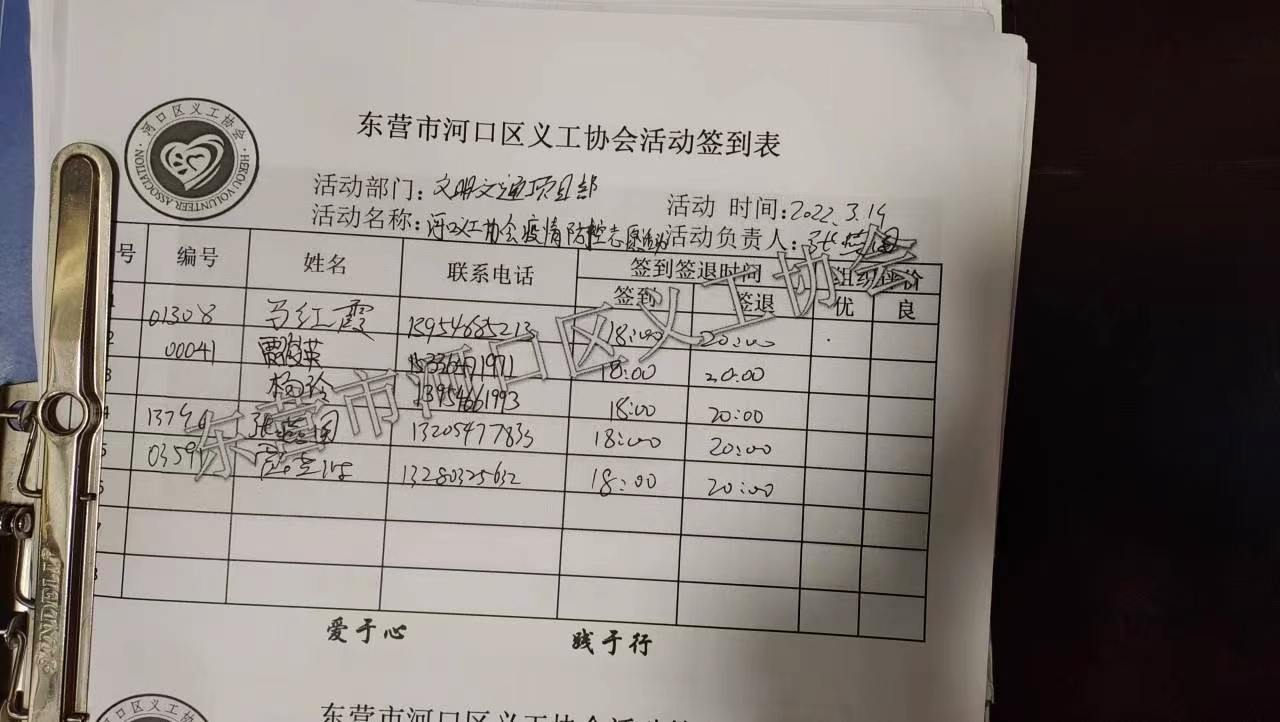 河口区义工协会
HEKOU VOLUNTEER ASSOCIATION
东营市河口区义工协会活动签到表
活动部门：文明交通项目部
活动 时间：2022.3.14
活动名称：河口义工协会疫情防控志愿活动
活动负责人：张
号 编号 姓名 联系电话 签到签退时间 组织评价
签到 签退 优 良
01308 马红霞 13954685213 18:00 20:00
2 00041 英 1971 18:00 20:00
3 杨玲 13954661993 18:00 20:00
4 张 13205477833 18:00 20:00
5 13280325632 18:00 20:00
爱于心 践于行
东营市河口区义工协会
河口区义工协会
东营市河口区义工协会活动
ANDELI